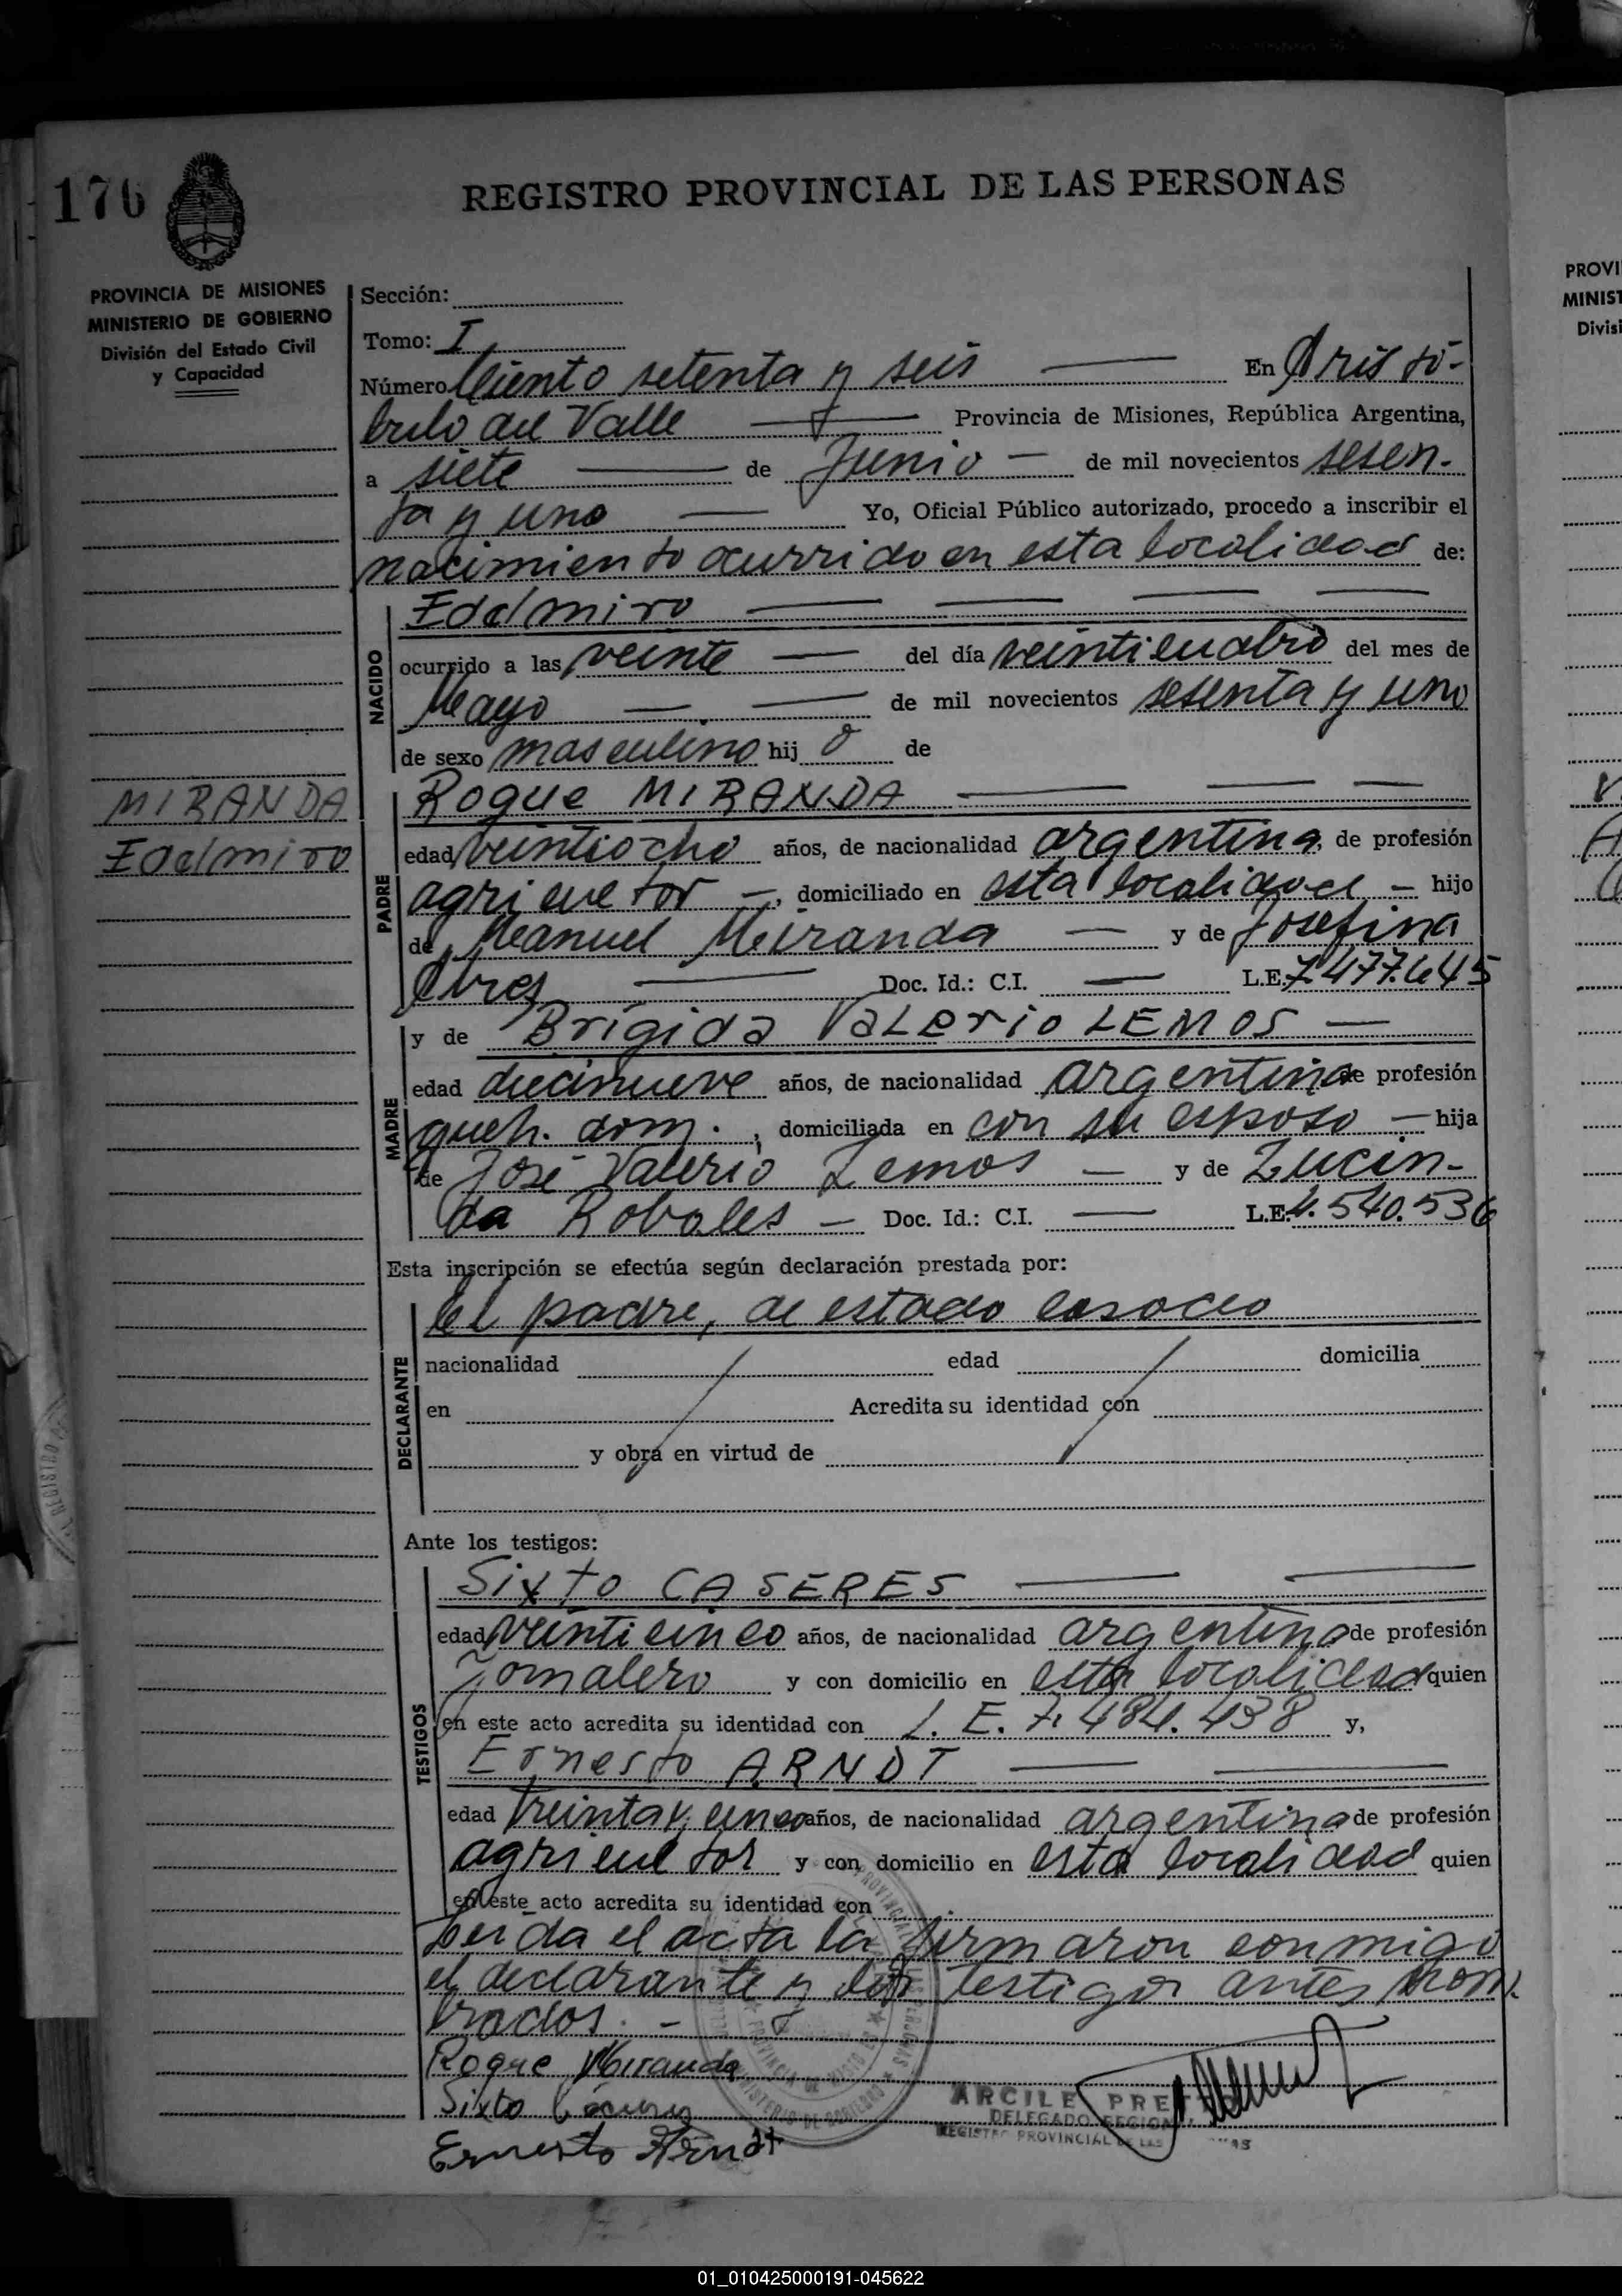 176
REGISTRO PROVINCIAL DE LAS PERSONAS
PROVINCIA DE MISIONES
MINISTERIO DE GOBIERNO
División del Estado Civil
y Capacidad
Sección:
Tomo: I
Número Ciento setenta y seis En Aristó-
bulo del Valle Provincia de Misiones, República Argentina,
a siete de Junio de mil novecientos sesen-
ta y uno Yo, Oficial Público autorizado, procedo a inscribir el
nacimiento ocurrido en esta localidad de:
NACIDO
Edelmiro
ocurrido a las veinte del día veinticuatro del mes de
Mayo de mil novecientos sesenta y uno
de sexo masculino hij o de
MIRANDA
Edelmiro
PADRE
Roque MIRANDA
edad veintiocho años, de nacionalidad argentina, de profesión
agricultor -, domiciliado en esta localidad - hijo
de Manuel Miranda y de Josefina
Doc. Id.: C.I. L.E. 7.477.645
MADRE
y de Brígida Valerio LEMOS
edad diecinueve años, de nacionalidad argentina de profesión
queh. dom. , domiciliada en con su esposo - hija
de José Valerio Lemos y de Lucin-
da Robales Doc. Id.: C.I. L.E. 4.540.536
Esta inscripción se efectúa según declaración prestada por:
DECLARANTE
el padre, de estado casado
nacionalidad edad domicilia
en Acredita su identidad con
y obra en virtud de
Ante los testigos:
TESTIGOS
Sixto CASERES
edad veinticinco años, de nacionalidad argentina de profesión
Jornalero y con domicilio en esta localidad quien
en este acto acredita su identidad con L.E. 7.484.438 y,
Ernesto ARNDT
edad treinta y cinco años, de nacionalidad argentina de profesión
agricultor y con domicilio en esta localidad quien
en este acto acredita su identidad con
Leida el acta la firmaron conmigo
el declarante y los testigos antes nom-
brados. -
Roque Miranda
Sixto Cáceres
Ernesto Arndt
ARCILE
DELEGADO REGIONAL
REGISTRO PROVINCIAL DE LAS
PROVI
MINIST
Divisi
01_010425000191-045622